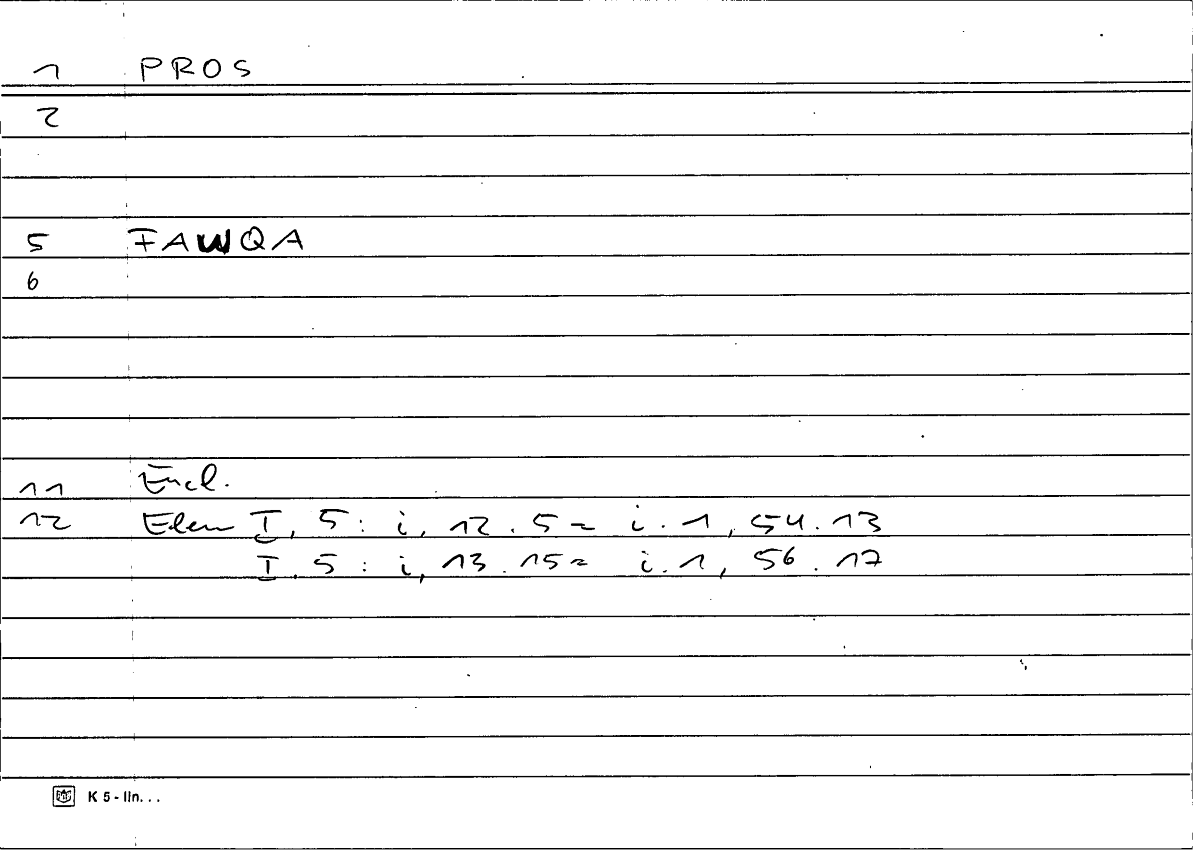 1 PROS
2
5 FAWQA
6
11 Eucl.
12 Elem I, 5 : i, 12.5 = i.1, 54.13
I, 5 : i, 13.15 = i.1, 56.17
K 5 - lin...